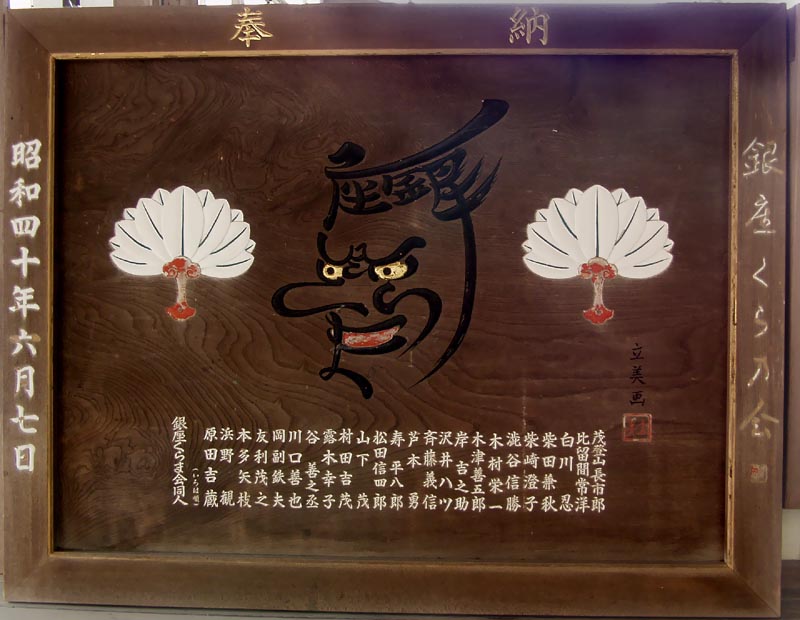 奉納
銀座くらま会
銀座
くらま
立美画
茂登山長市郎
比留間常洋
白川忍
柴田兼秋
柴崎澄子
瀧谷信勝
木村栄一
木津善五郎
岸吉之助
沢井八ツ
斉藤義信
芦本勇
寿平八郎
松田信四郎
山下茂
村田吉茂
露木幸子
谷善之丞
川口善也
岡副鉄夫
友利茂之
本多矢枝
浜野
原田吉蔵
銀座くらま会同人
(いろは順)
昭和四十年六月七日